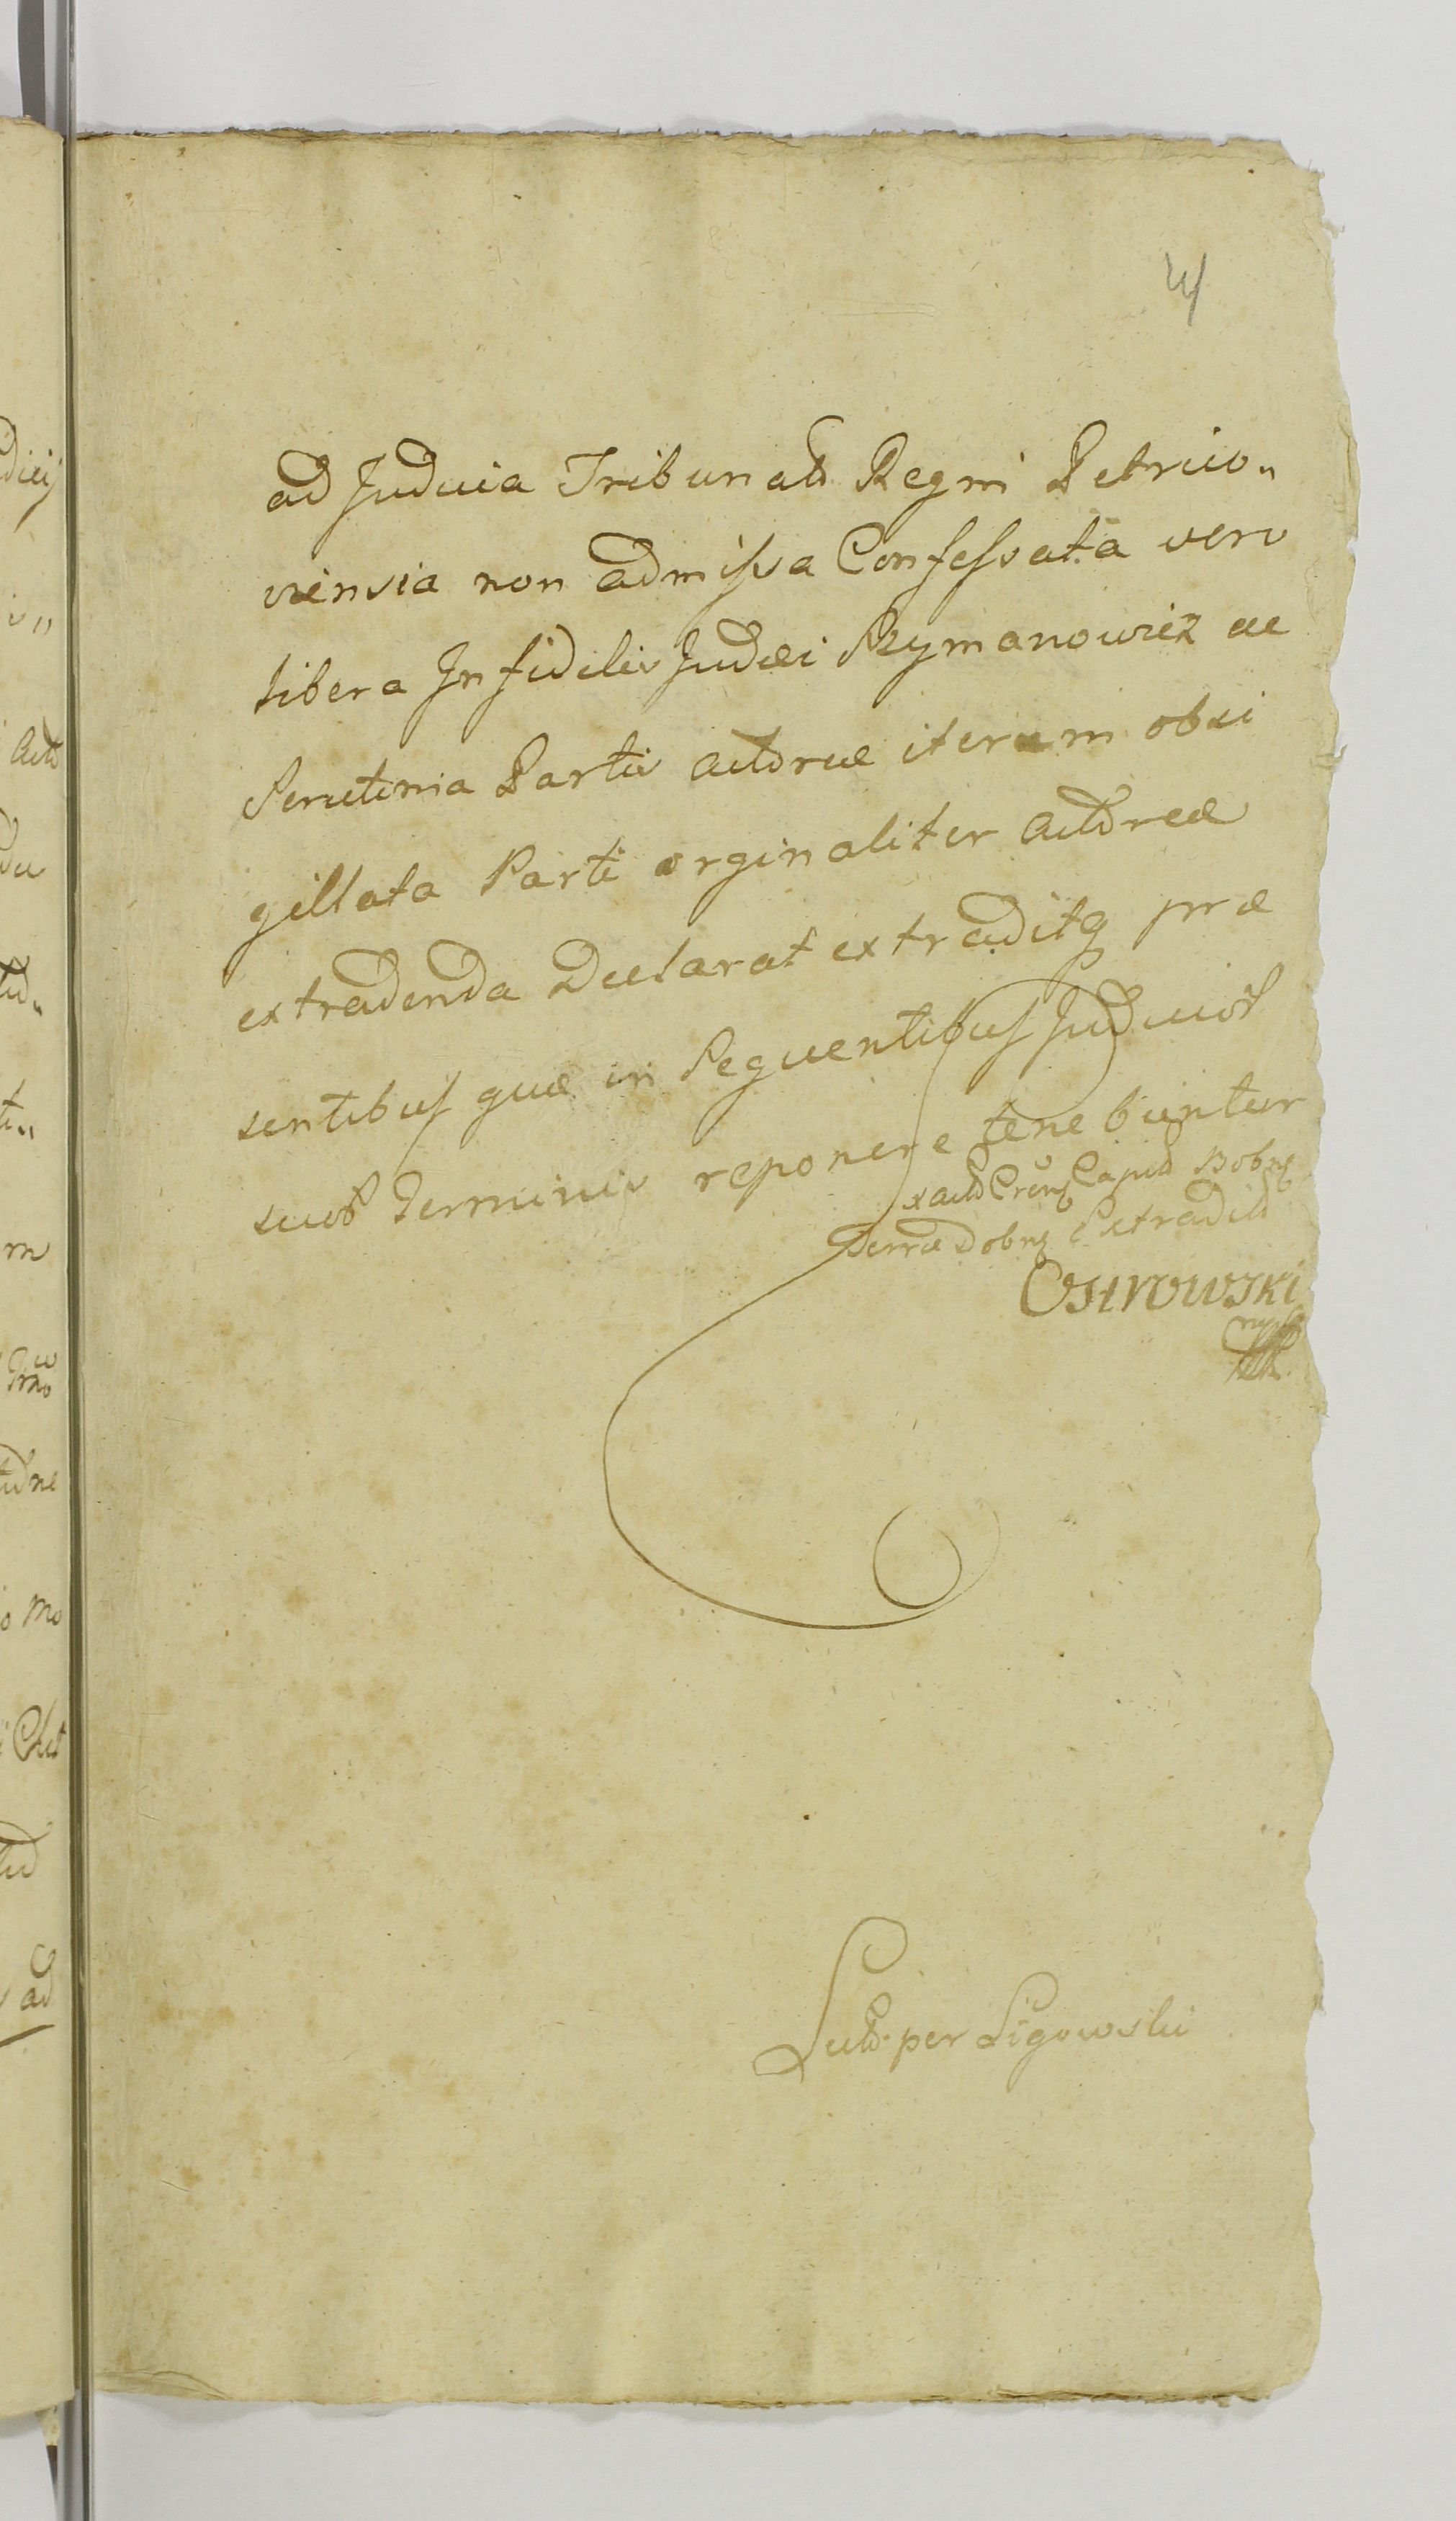 4
ad Judicia Tribunalis Regni Petrico„
viensia non admissa Confessata vero
libera Infidelis Judæi Szymanowicz ac
Scrutinia Partis actoreæ iterum obsi
gillata Parti orginaliter actoreæ
extradenda Declarat extraditq præ
sentibus quæ in Sequentibus Judiciorū
suorū Terminis reponere tenebuntur
x actis Capit Bobr
Terræ Dobrz Extradit
Ostrowski
mpp
Lect per Ligowski